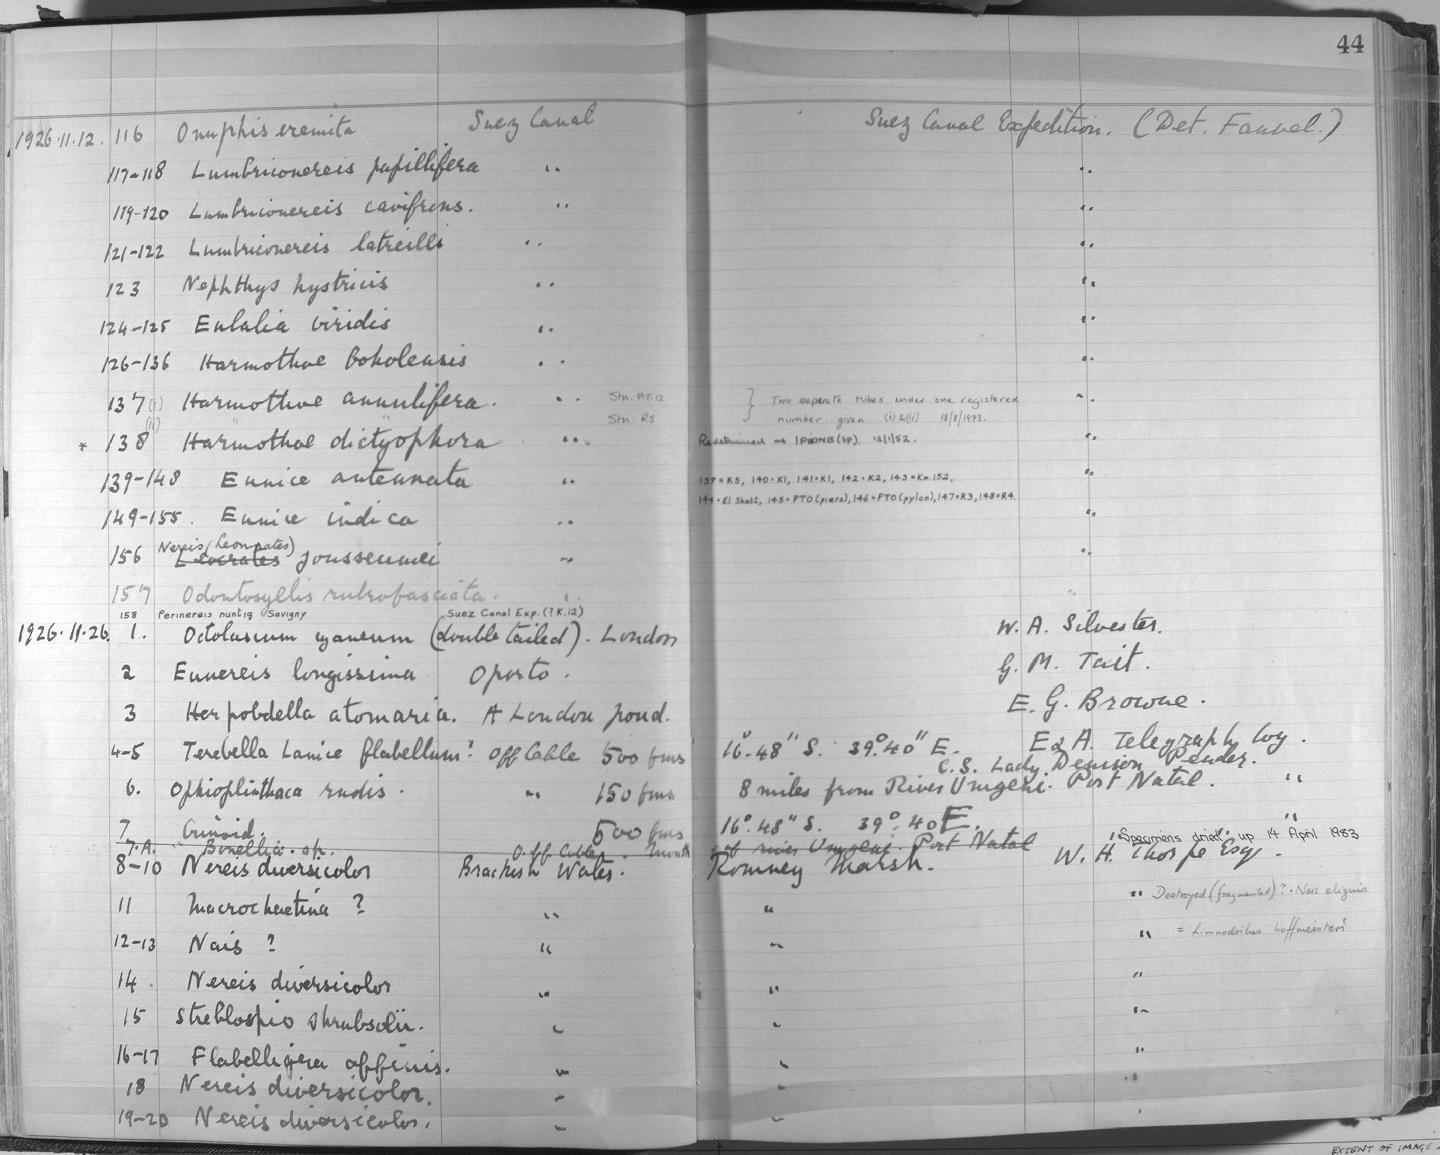 44
1926.11.12. 116 Onuphis eremita Suez Canal Suez Canal Expedition. (Det. Fauvel.)
117-118 Lumbriconereis papillifera " "
119-120 Lumbriconereis cavifrons. " "
121-122 Lumbriconereis latreilli " "
123 Nephthys hystricis " "
124-125 Eulalia viridis " "
126-136 Harmothoe boholensis " "
137 (i) Harmothoe ampulifera. " Stn. P.T.12 } Two separate tubes under one registered "
(ii) Stn. R5 number given (i) & (ii) 15/8/1973.
* 138 Harmothoe dictyophora " Redetermined as IPHIONE (SP). 12/1/52. "
139-148 Eunice antennata " 139=K5, 140=K1, 141=K1, 142=K2, 143=Km.152, "
144=El Shatt, 145=PTO(piers), 146=PTO(pylon), 147=R3, 148=R4.
149-155. Eunice indica " "
Nereis (Leonnates)
156 Leocrates jousseaumei " "
157 Odontosyllis rubrofasciata. " "
158 Perinereis nuntia Savigny Suez Canal Exp. (? K.12)
1926.11.26. 1. Octolasium cyaneum (double tailed). London W. A. Silvester.
2 Eunereis longissima Oporto. G. M. Tait.
3 Herpobdella atomaria. A London pond. E. G. Browne.
4-5 Terebella Lanice flabellum? Off Cable 500 fms 16°.48" S. 39°.40" E. E & A. Telegraph Coy.
C.S. Lady Denison Pender.
6. Ophioplinthaca rudis. " 150 fms 8 miles from River Umgeni. Port Natal. "
7 Crinoid. 500 fms 16°.48" S. 39°.40 E. "
7.A. " Bonellia. sp. Off Cable. mouth of river Umgeni. Port Natal "Specimens dried" up 14 April 1983
8-10 Nereis diversicolor Brackish Water. Romney Marsh. W. H. Thorpe Esq.
11 Macrochaetina ? " " " Destroyed (fragmented) ? = Nais elinguis
12-13 Nais ? " " " = Limnodrilus hoffmeisteri
14. Nereis diversicolor " " "
15 Streblospio shrubsolii. " " "
16-17 Flabelligera affinis. " " "
18 Nereis diversicolor. " " "
19-20 Nereis diversicolor. " " "
EXTENT OF IMAGE